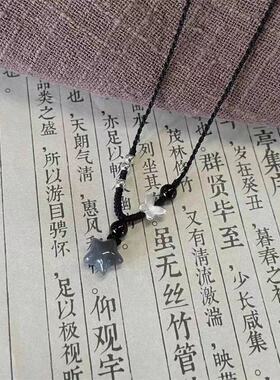 亭集
岁在癸丑
暮春之
群贤毕至
少长咸集
茂林修
又有清流激湍
列坐其
虽无丝竹管
亦足以畅
天朗气清
惠风
仰观宇
品类之盛
所以游目骋怀
足以极视听